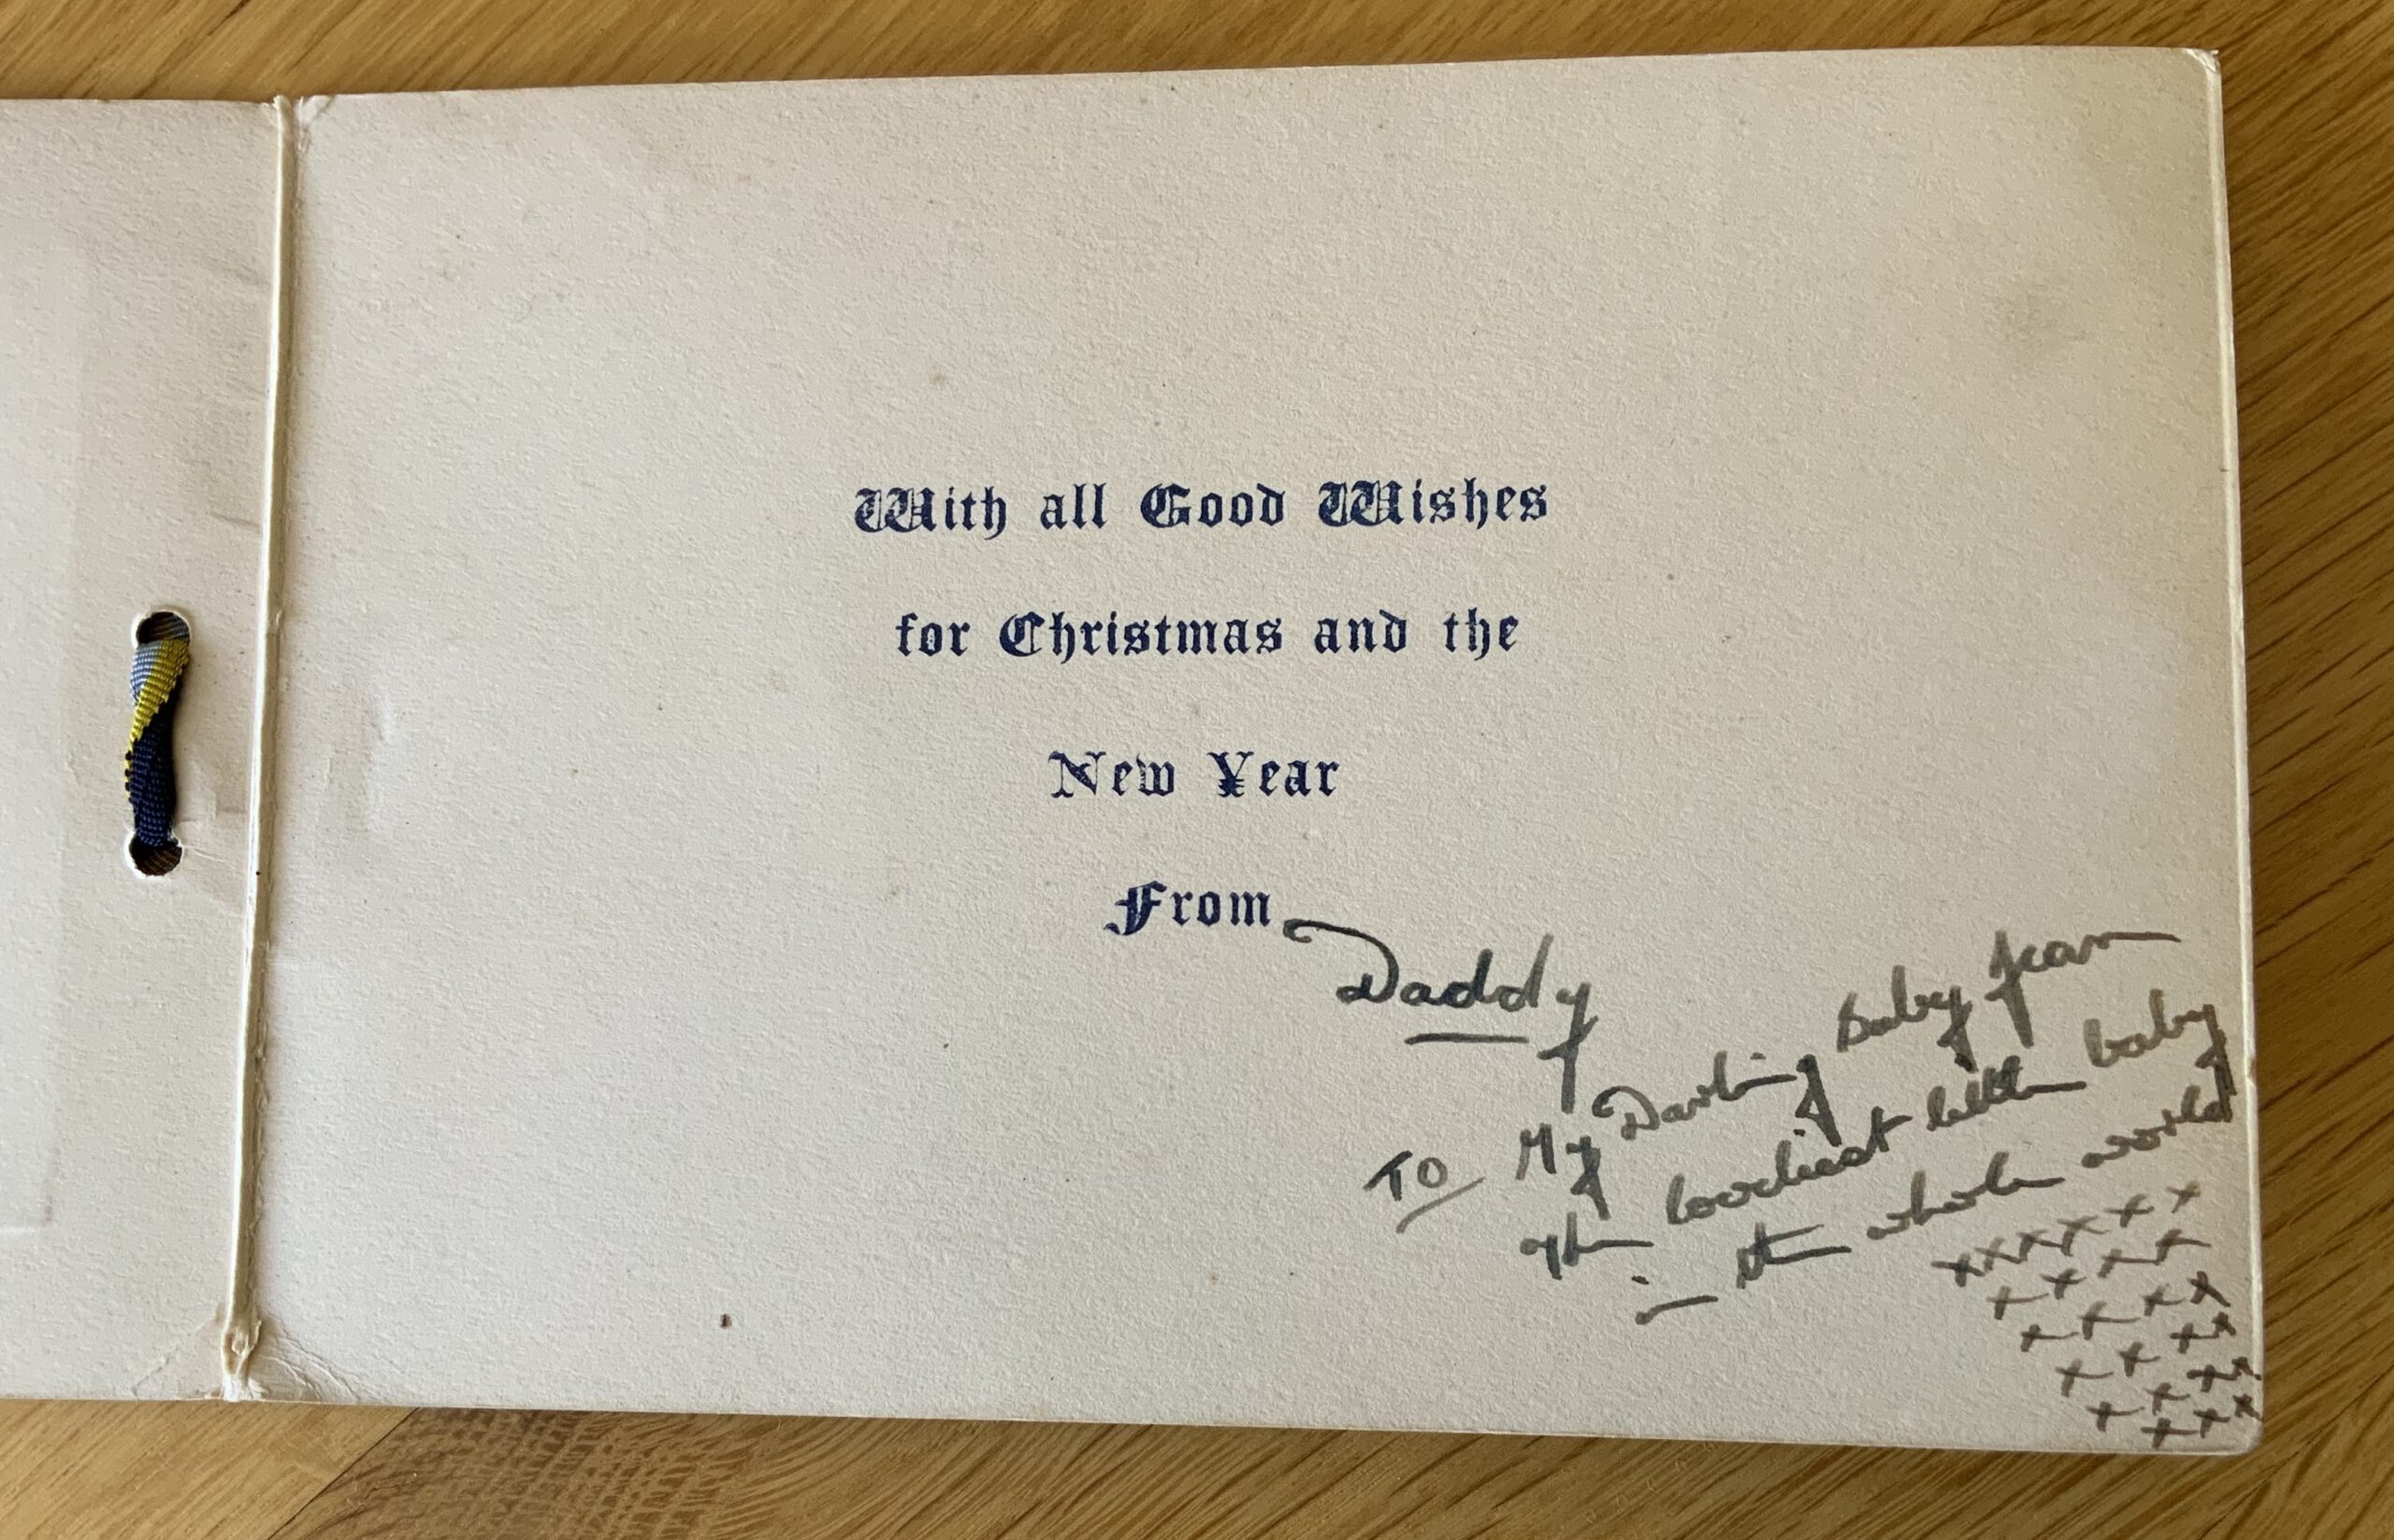 With all Good Wishes
for Christmas and the
New Year
From
Daddy
TO My Darling Baby Jean
The loveliest little baby
in the whole world
x x x x x x
x x x x
x x x x
x x x x
x x x x
x x x x